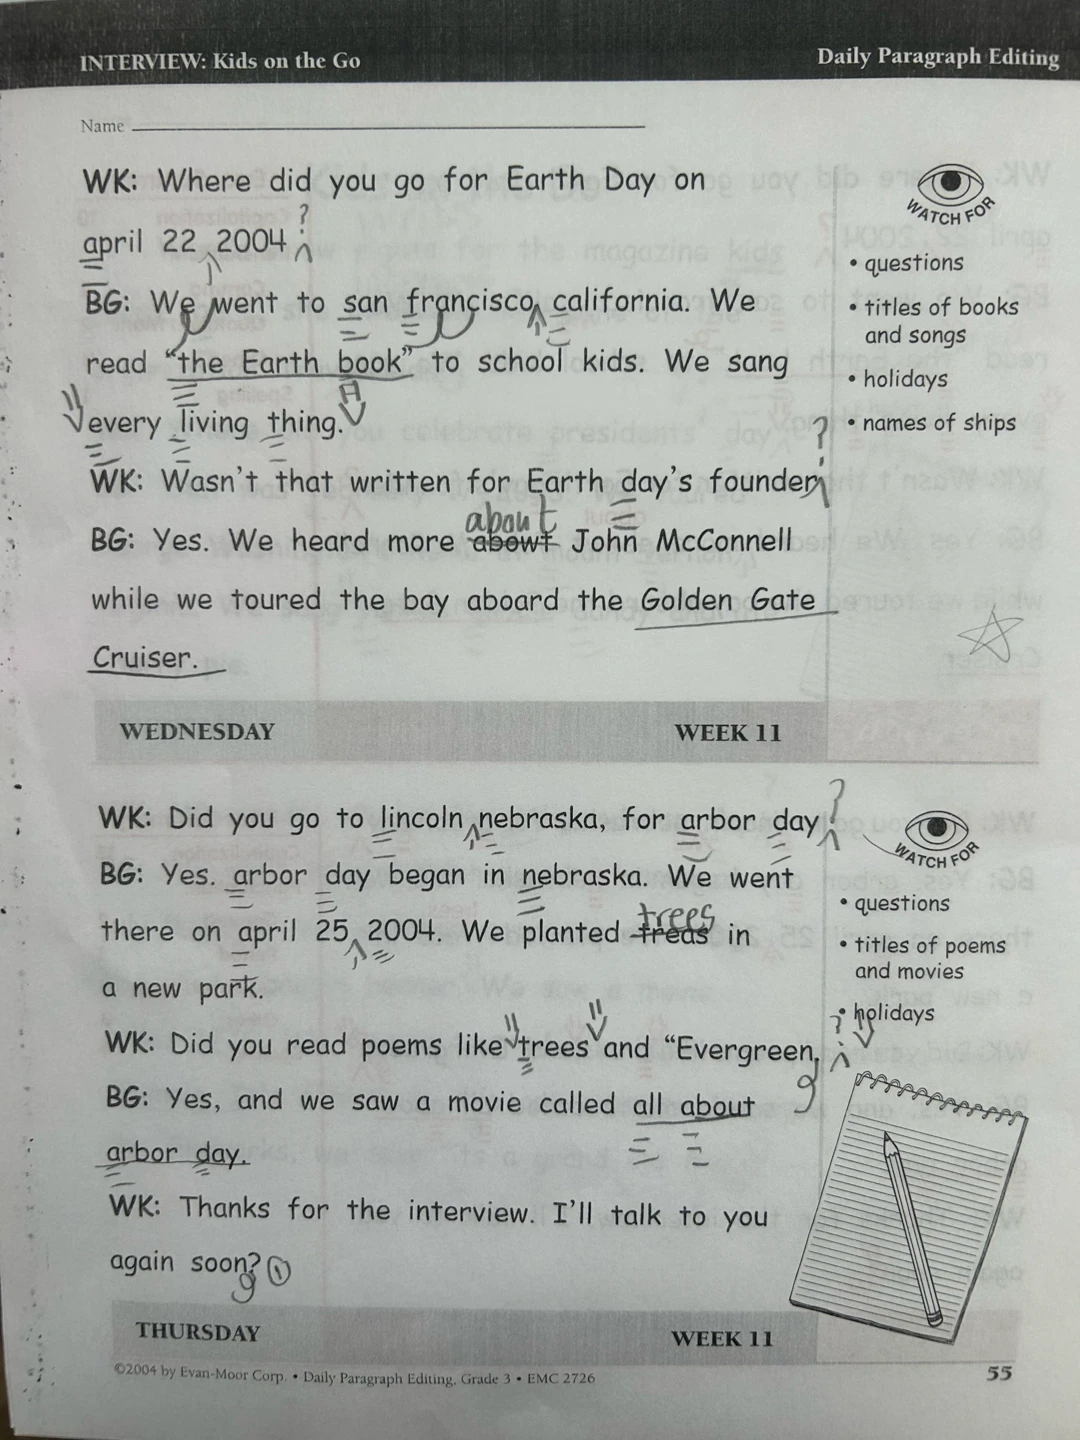 INTERVIEW: Kids on the Go
Daily Paragraph Editing
Name
WK: Where did you go for Earth Day on
?
april 22 2004
BG: We went to san francisco california. We
read "the Earth book" to school kids. We sang
every living thing.
?
WK: Wasn't that written for Earth day's founder
about
BG: Yes. We heard more abowt John McConnell
while we toured the bay aboard the Golden Gate
Cruiser.
WATCH FOR
• questions
• titles of books
and songs
• holidays
• names of ships
WEDNESDAY
WEEK 11
?
WK: Did you go to lincoln nebraska, for arbor day
BG: Yes. arbor day began in nebraska. We went
trees
there on april 25 2004. We planted treas in
a new park.
?
WK: Did you read poems like trees and "Evergreen.
BG: Yes, and we saw a movie called all about
arbor day.
WK: Thanks for the interview. I'll talk to you
again soon?
WATCH FOR
• questions
• titles of poems
and movies
• holidays
THURSDAY
WEEK 11
©2004 by Evan-Moor Corp. • Daily Paragraph Editing, Grade 3 • EMC 2726
55